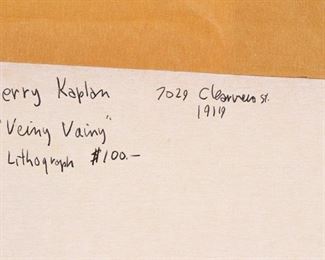 erry Kaplan
"Veiny Vainy"
Lithograph $100.—
7029 st.
1919